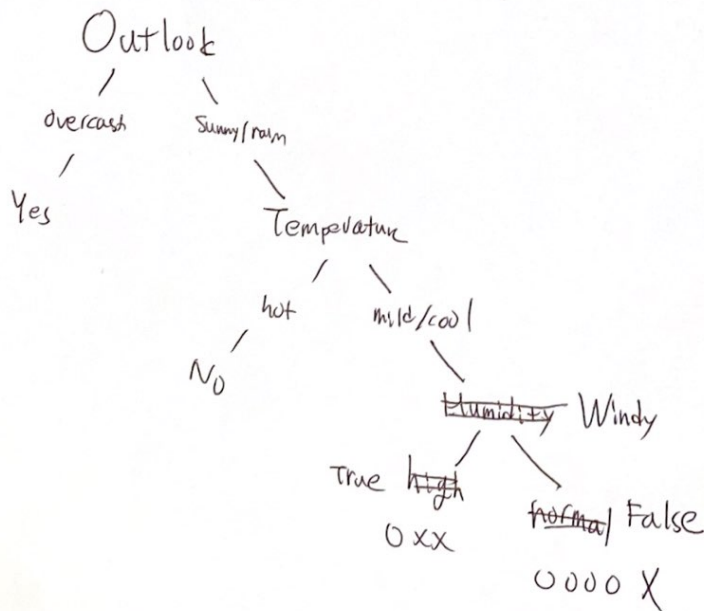 Outlook
overcast
Sunny/rain
Yes
Temperature
hot
mild/cool
No
Humidity Windy
True high
normal False
O X X
O O O O X